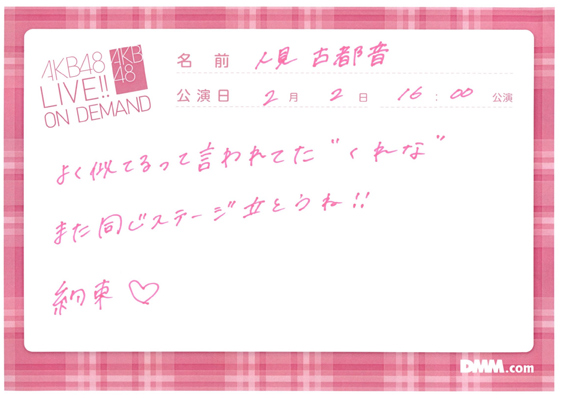 AKB48
LIVE!!
ON DEMAND
AKB
48
名前 人見 古都音
公演日 2月 2日 16:00 公演
よく似てるって言われてた"くれな"
また同じステージ立とうね!!
約束♡
DMM.com